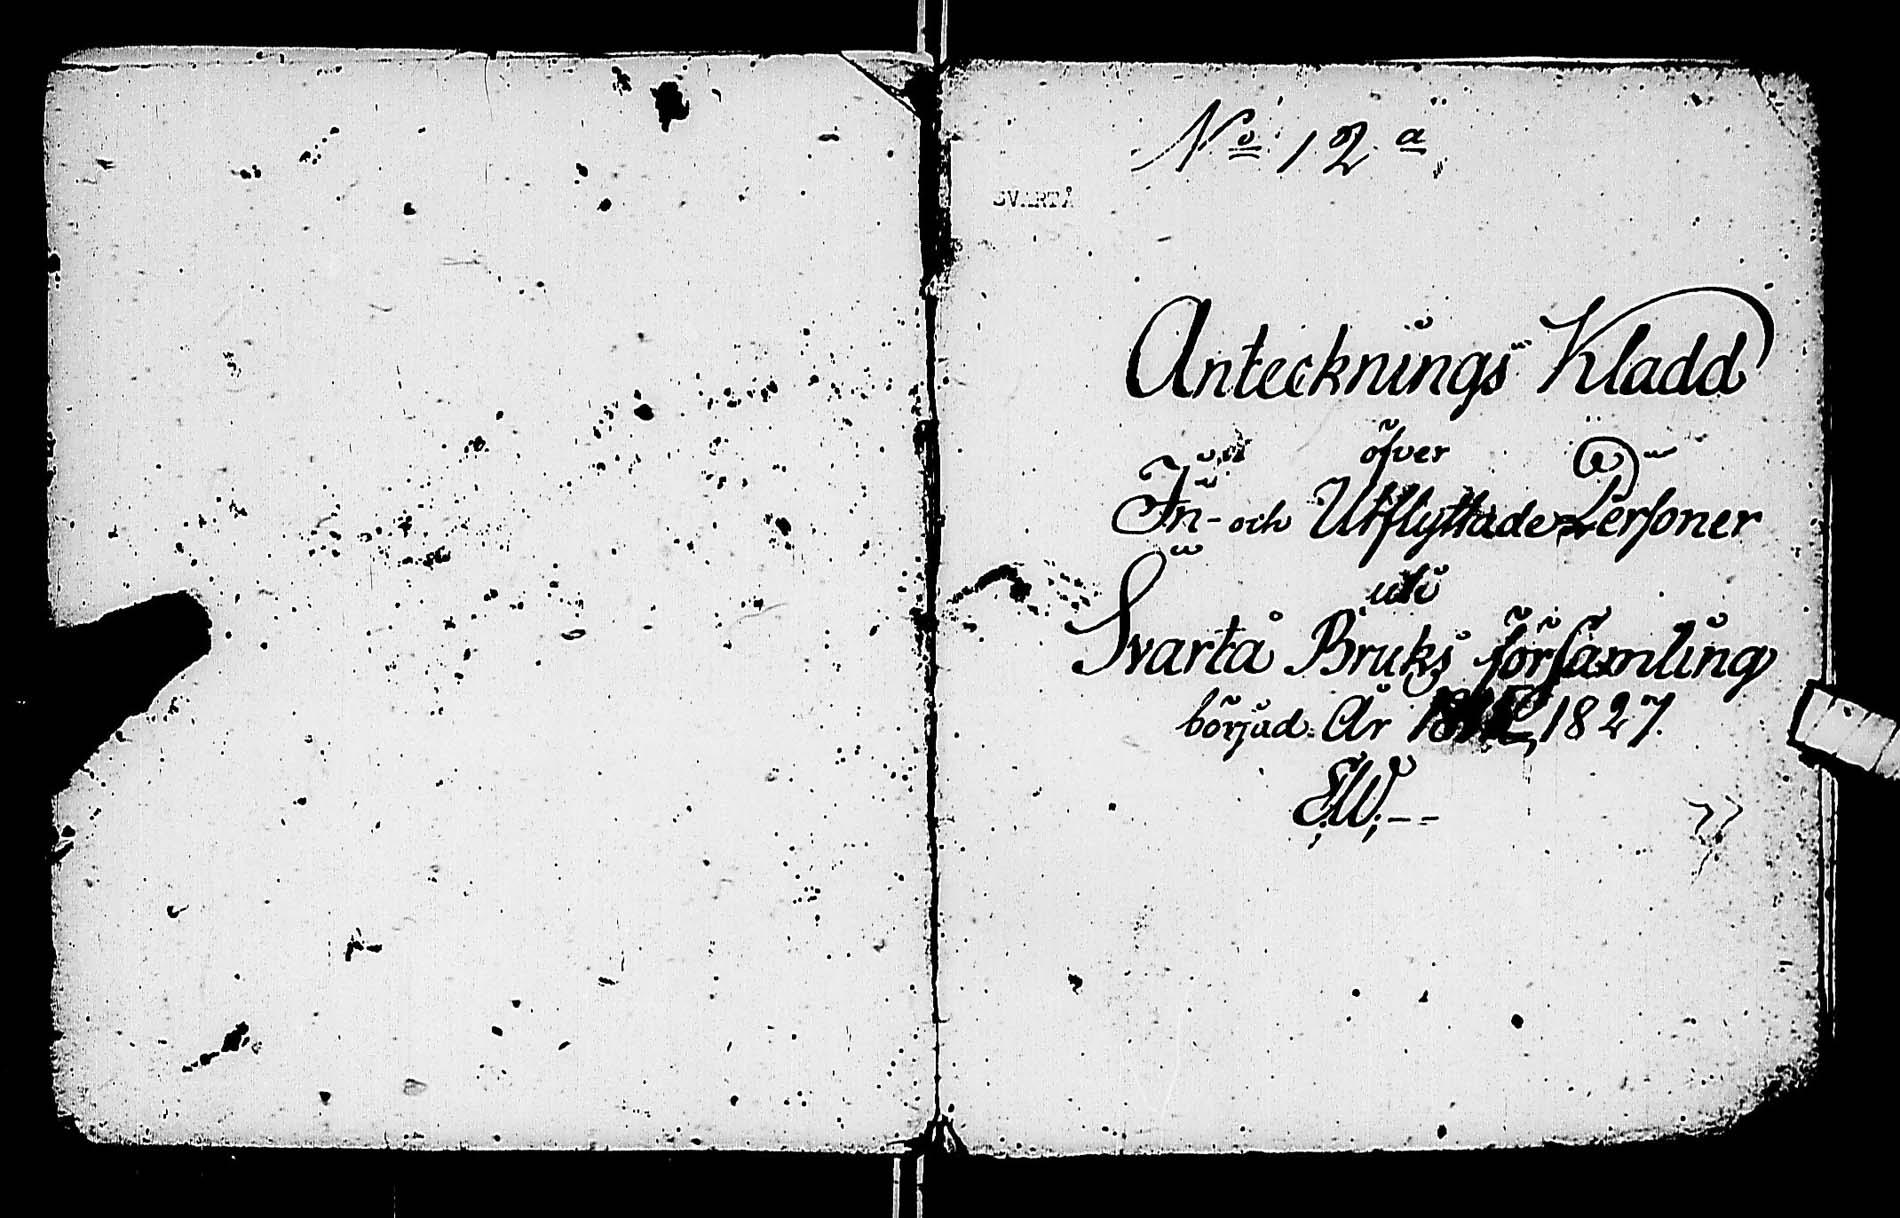 No 12 a
SVARTÅ
Antecknings Kladd
öfver
In- och Utflyttade Personer
uti
Svartå Bruks församling
börjad. År 1827.
E.W.